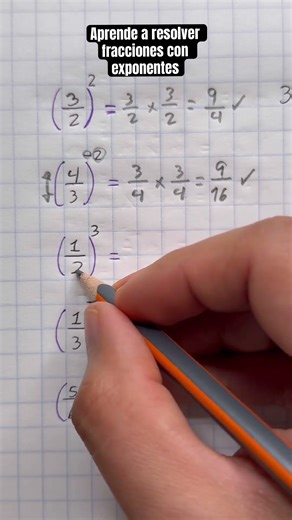 Aprende a resolver
fracciones con
exponentes
(3/2)^2 = 3/2 × 3/2 = 9/4 ✓
3
(4/3)^-2 = 3/4 × 3/4 = 9/16 ✓
(1/2)^3 =
(1/3
(5/